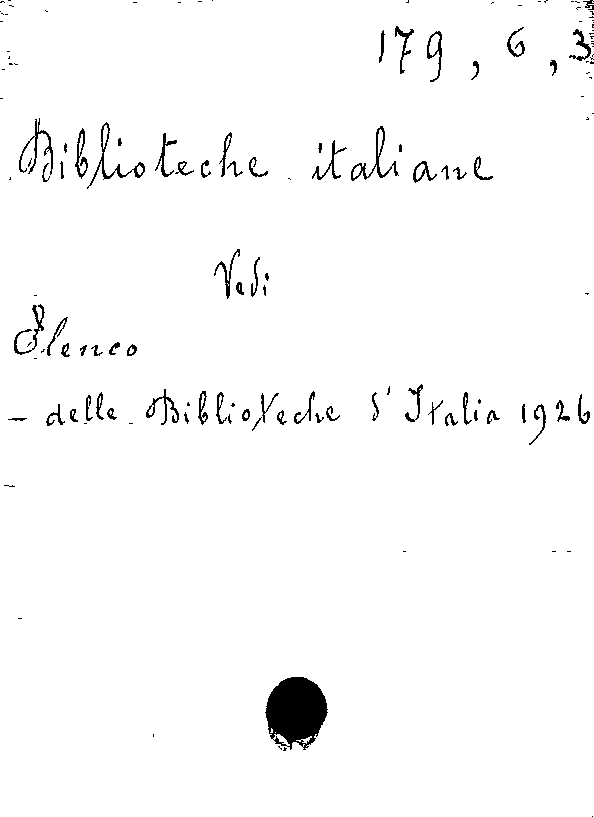 179, 6, 3
Biblioteche italiane
Vedi
Elenco
- delle Biblioteche d'Italia 1926